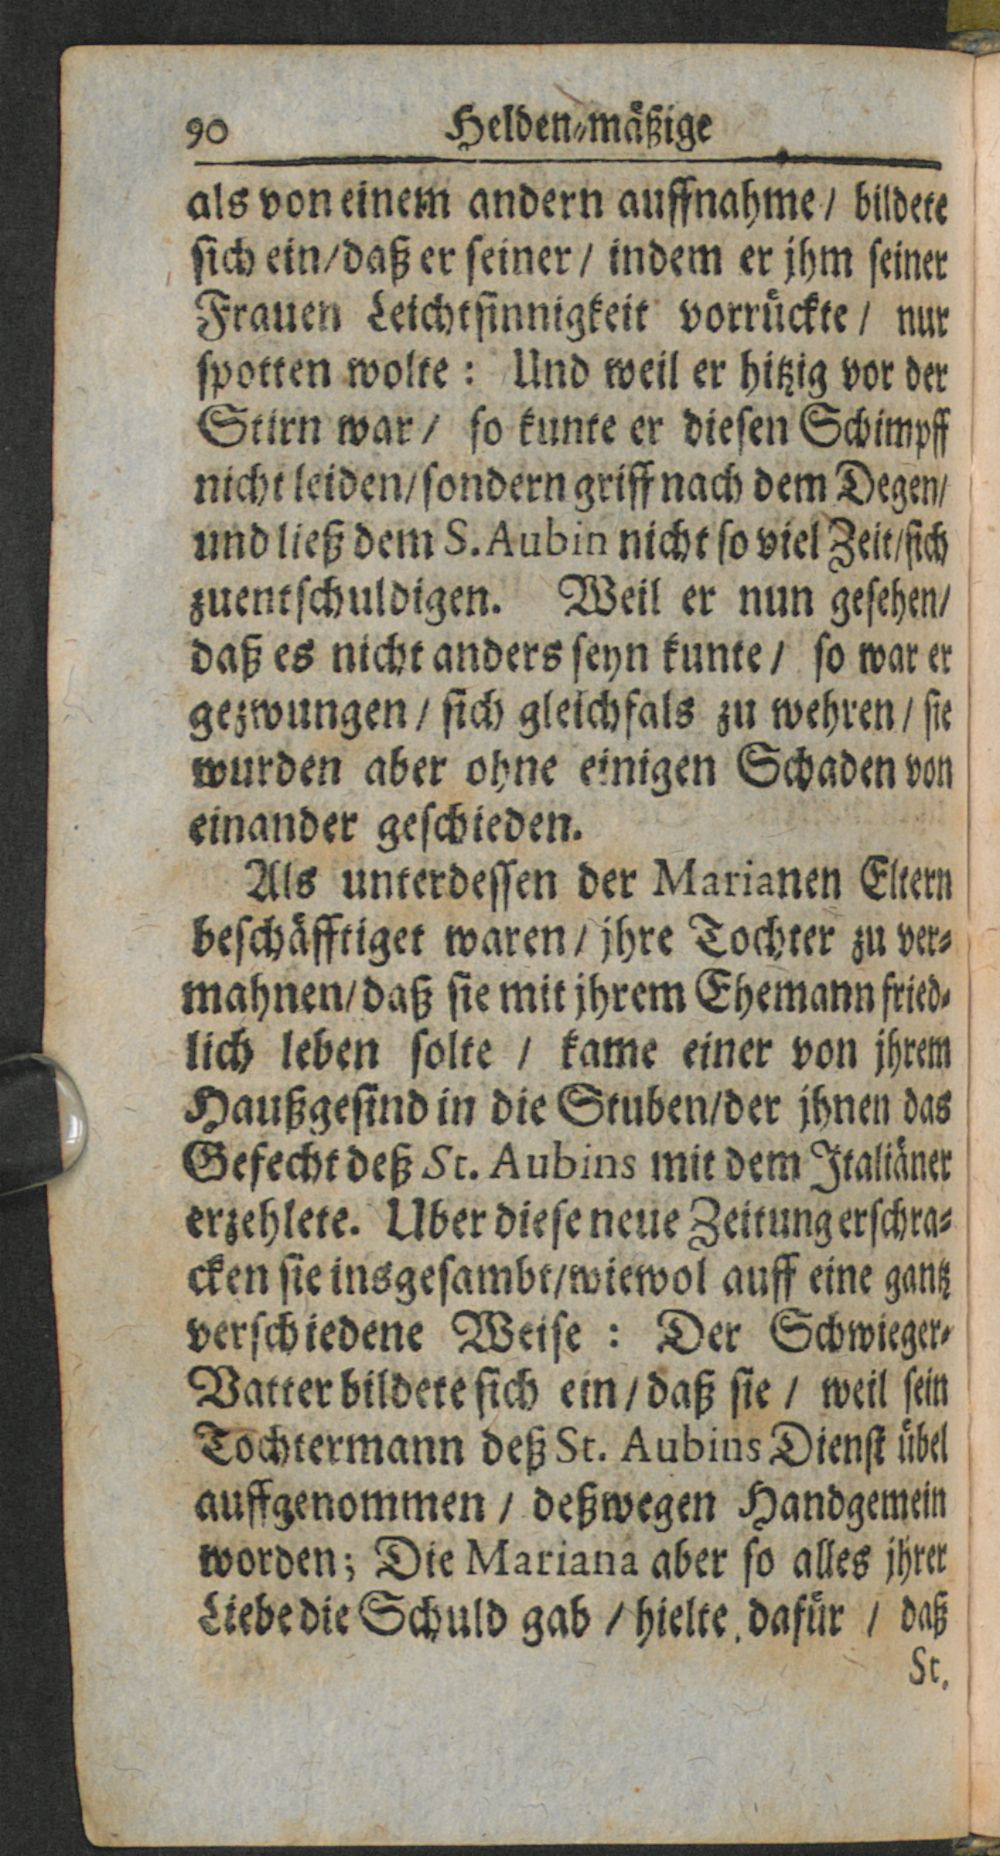 90 Helden-mäßige
als von einem andern auffnahme / bildete
sich ein/daß er seiner / indem er jhm seiner
Frauen Leichtsinnigkeit vorrückte / nur
spotten wolte : Und weil er hitzig vor der
Stirn war / so kunte er diesen Schimpff
nicht leiden/sondern griff nach dem Degen/
und ließ dem S. Aubin nicht so viel Zeit/sich
zuentschuldigen. Weil er nun gesehen/
daß es nicht anders seyn kunte / so war er
gezwungen / sich gleichfals zu wehren / sie
wurden aber ohne einigen Schaden von
einander geschieden.
Als unterdessen der Marianen Eltern
beschäfftiget waren / jhre Tochter zu ver-
mahnen/daß sie mit jhrem Ehemann fried-
lich leben solte / kame einer von jhrem
Haußgesind in die Stuben/der jhnen das
Gefecht deß St. Aubins mit dem Italiäner
erzehlete. Uber diese neue Zeitung erschra-
cken sie insgesambt/wiewol auff eine gantz
verschiedene Weise : Der Schwieger-
Vatter bildete sich ein / daß sie / weil sein
Tochtermann deß St. Aubins Dienst übel
auffgenommen / deßwegen Handgemein
worden; Die Mariana aber so alles jhrer
Liebe die Schuld gab / hielte dafür / daß
St.